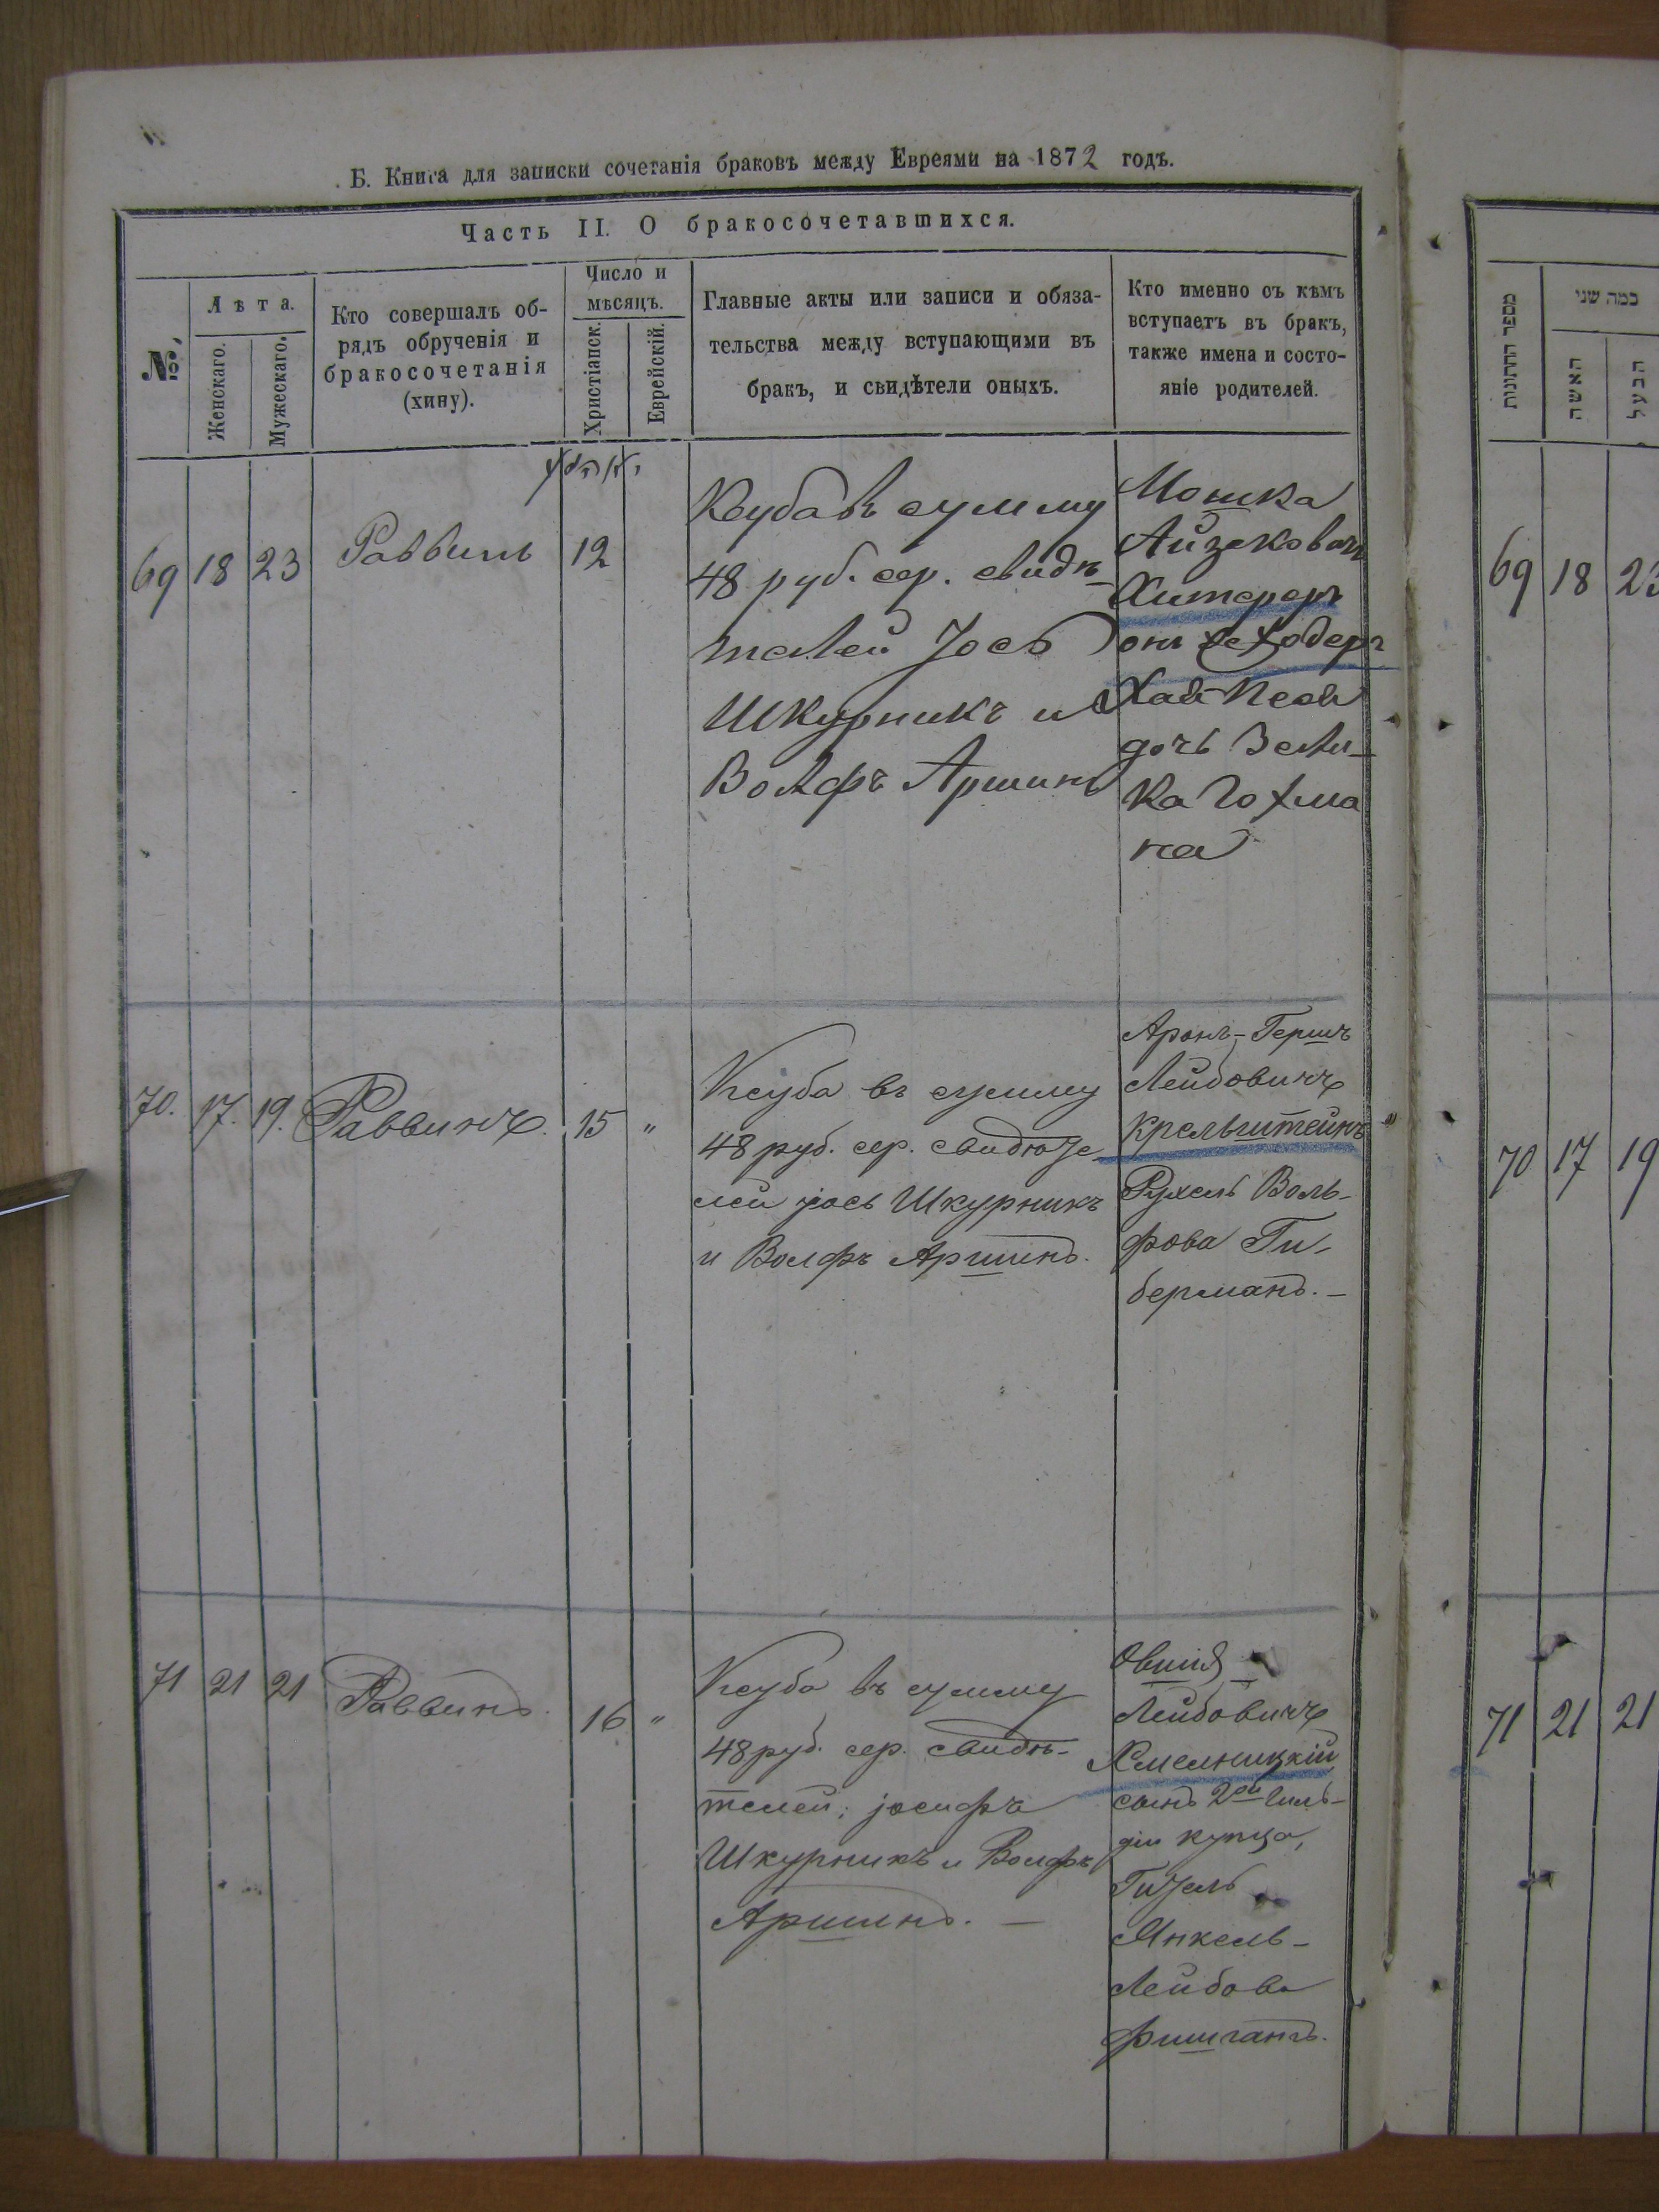 Б. Книга для записки сочетанія браковъ между Евреями на 1872 годъ.
Часть II. О бракосочетавшихся.
№
Лѣта.
Женскаго.
Мужескаго.
Кто совершалъ об-
рядъ обрученія и
бракосочетанія
(хину).
Число и
мѣсяцъ.
Христіанск.
Еврейскій.
Главные акты или записи и обяза-
тельства между вступающими въ
бракъ, и свидѣтели оныхъ.
Кто именно съ кѣмъ
вступаетъ въ бракъ,
также имена и состо-
яніе родителей.
69 18 23 Раввинъ 12
Ксуба въ сумму
48 руб. сер. свидѣ-
телей Јось
Шкурникъ и
Волфъ Аршинъ
Мошка
Айзековичъ
Хитереръ
онъ же Ходеръ
Хая-Песя
дочь Зели-
ка Гохма
на
70. 17. 19. Раввинъ. 15 "
Ксуба въ сумму
48 руб. сер. свидѣте-
лей јось Шкурникъ
и Волфъ Аршинъ.
Аронъ-Гершъ
Лейбовичъ
Крельштейнъ "
Рухель Воль-
фова Ги-
берманъ. –
71 21 21 Раввинъ. 16 "
Ксуба въ сумму
48 руб. сер. свидѣ-
телей: јосифъ
Шкурникъ и Волфъ
Аршинъ. –
Овшія –
Лейбовичъ
Хмельницкій
сынъ 2ой Гиль-
діи купца,
Гитель
Янкель-
Лейбова
Фишганъ.
מספר החתונות
כמה שני
האשה
הבעל
69 18 23
70 17 19
71 21 21